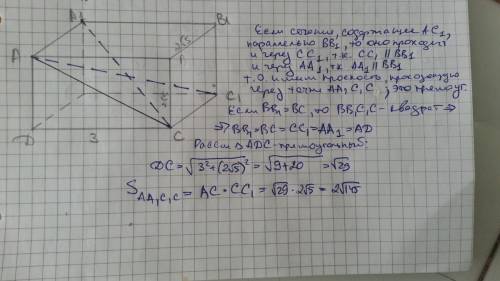 A₁
B₁
A
2√5
1
C₁
D
3
C
Если сечение, содержащее AC₁,
параллельно BB₁, то оно проходит
и через CC₁, т.к. CC₁ ∥ BB₁
и через AA₁, т.к. AA₁ ∥ BB₁
т.о. имеем плоскость, проходящую
через точки AA₁C₁C, это прямоуг.
Если BB₁=BC, то BB₁C₁C - квадрат ⇒
⇒ BB₁=BC=CC₁=AA₁=AD
Рассм △ADC - прямоугольный:
DC = √3²+(2√5)² = √9+20 = √29
S AA₁C₁C = AC · CC₁ = √29 · 2√5 = 2√145